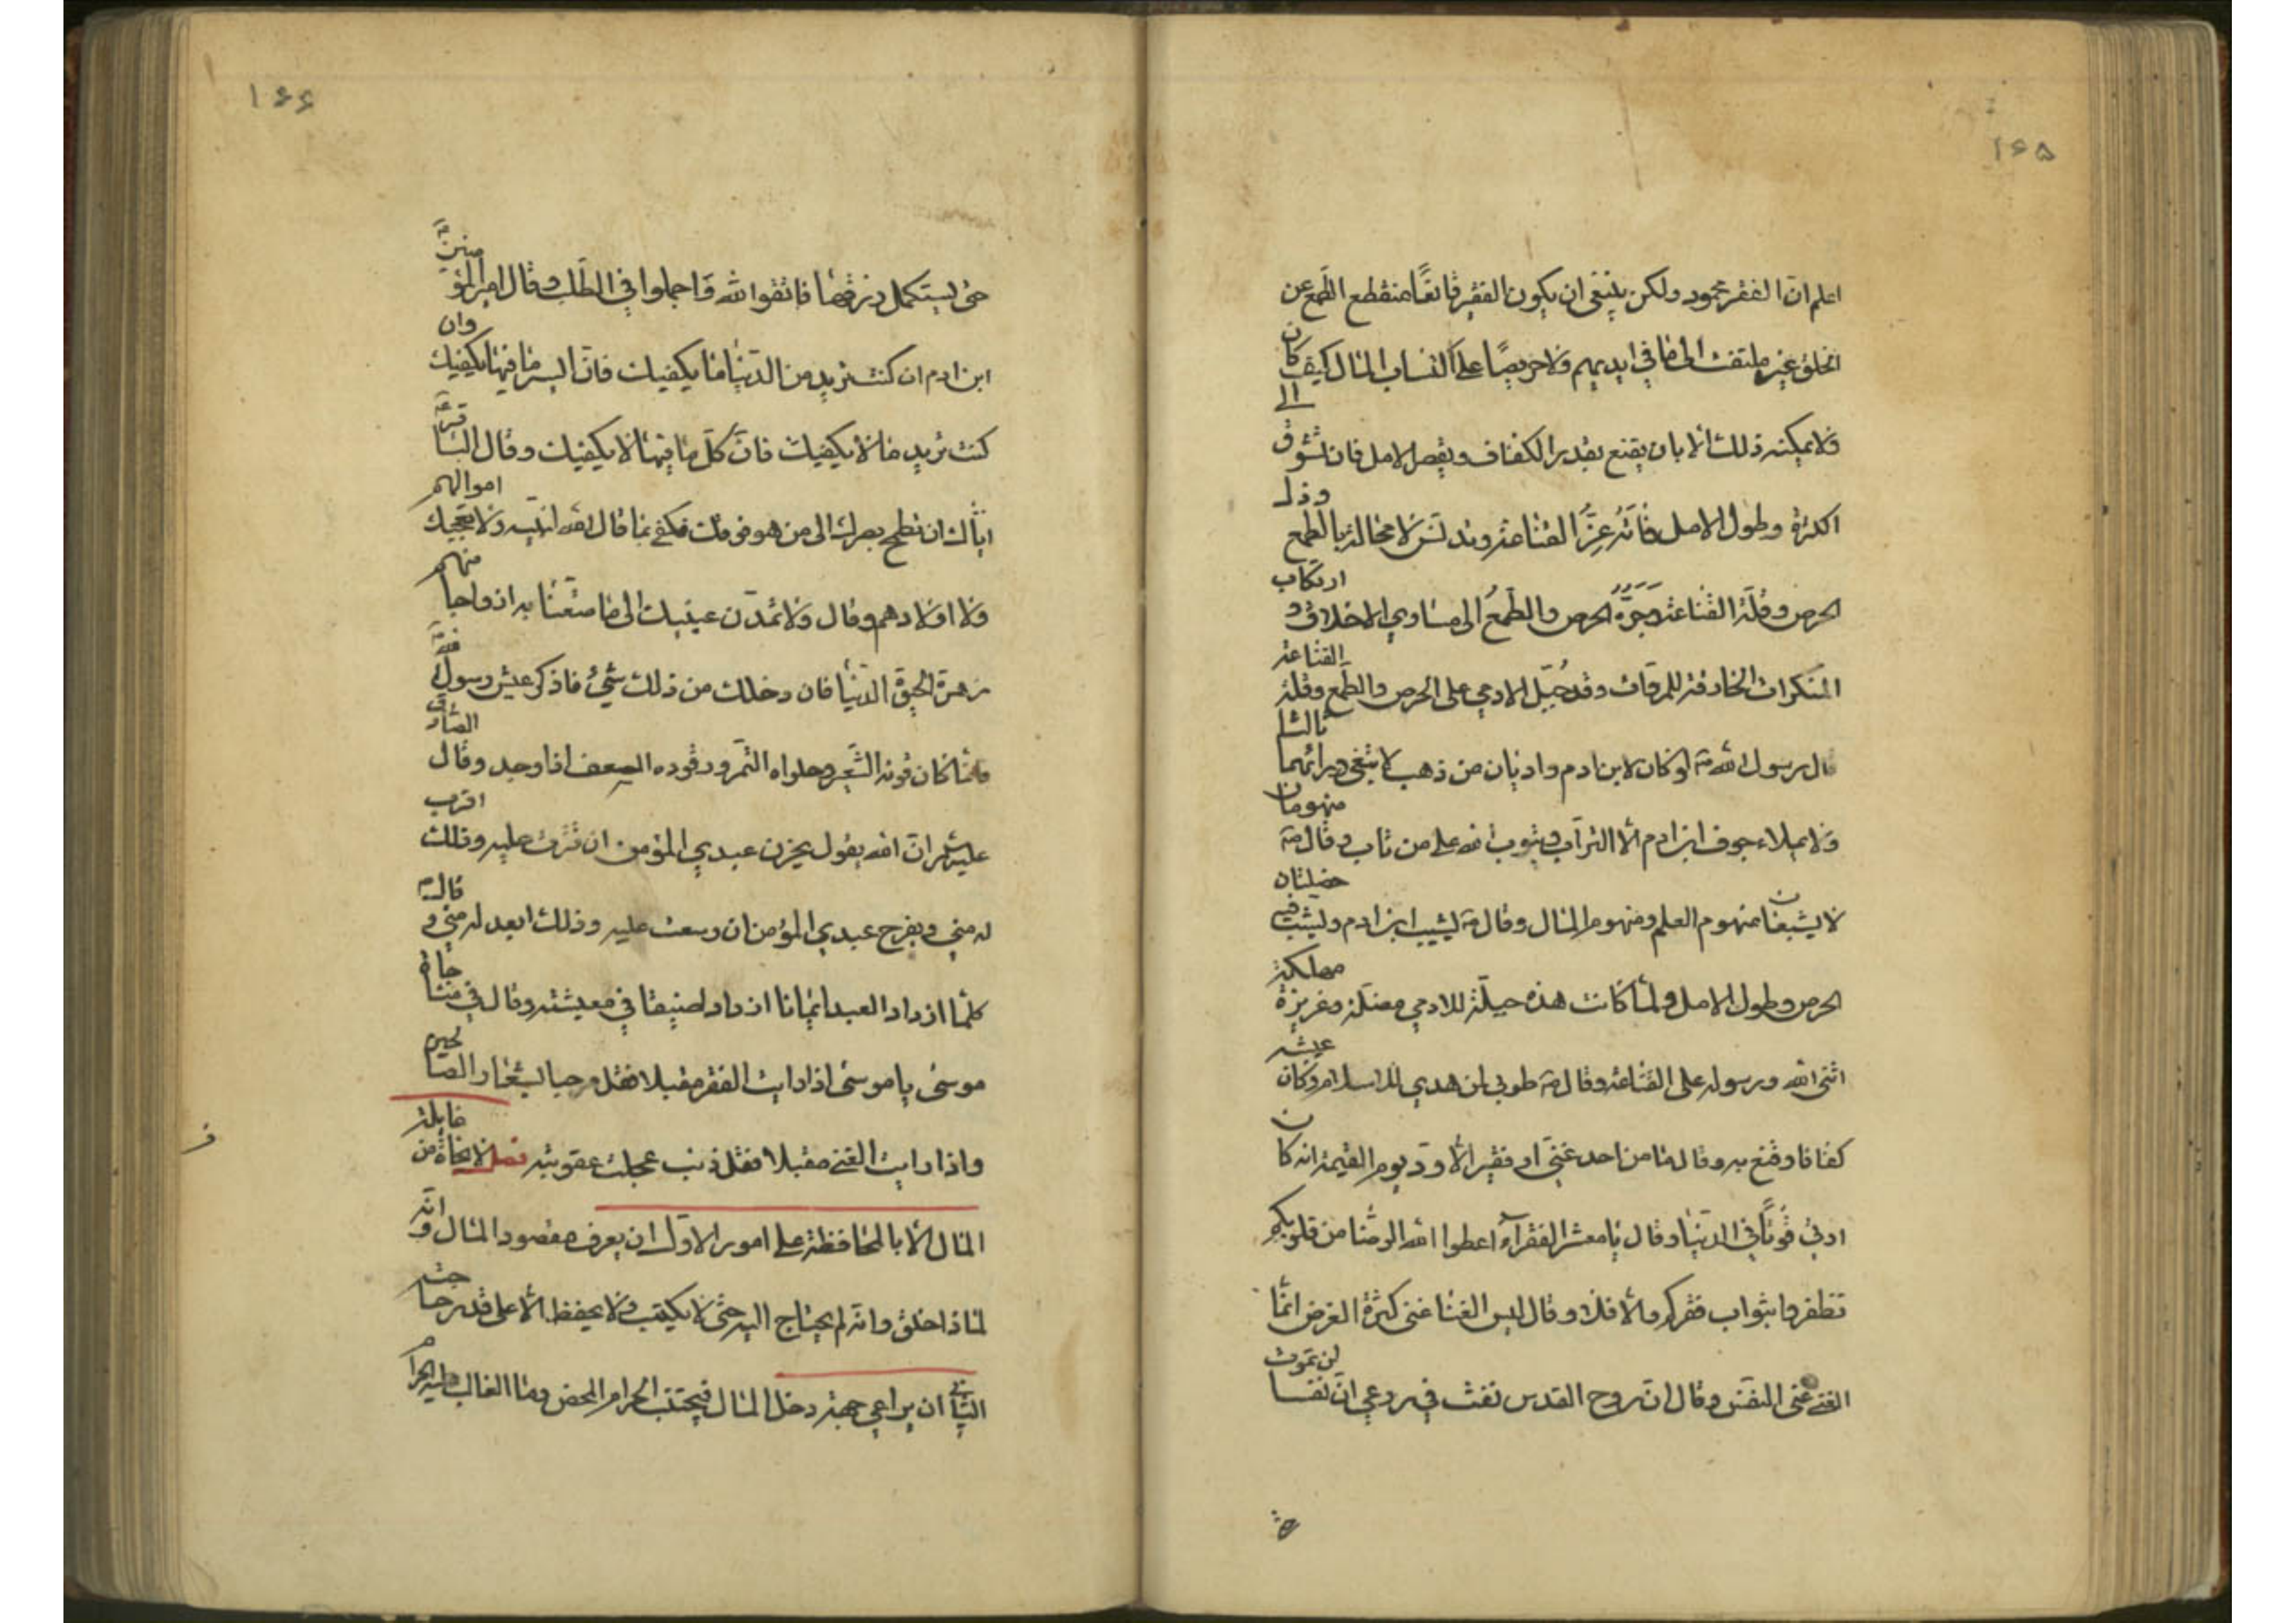 ١٦٥
اعلم ان الفقر محمود ولكن ينبغى ان يكون الفقير قانعًا منقطع الطمع عن
الخلق غير ملتفت الى ما فى ايديهم ولا حريصًا على اكتساب المال كيف كان
ولا يمكنه ذلك الا بان يقنع بقدر الكفاف ويقصر الامل فان تشوق الى
الكثرة وطول الامل فاته عزّ القناعة وتدنس لا محالة بالطمع وذل
الحرص وقلة القناعة وجرّه الحرص والطمعُ الى مساوي الاخلاق و ارتكاب
المنكرات الخارقة للمروات وقد جُبّل الادمي على الحرص والطمع وقلة القناعة
قال رسول الله ص لو كان لابن ادم واديان من ذهب لابتغى ورائهما ثالثا
ولا يملاء جوف ابن ادم الا التراب ويتوب الله على من تاب وقال ص منهومان
لا يشبعان منهوم العلم ومنهوم المال وقال ص يشيب ابن ادم ويشب فيه خصلتان
الحرص وطول الامل ولما كانت هذه جبلّة للادمي مضلة وغريزة مهلكة
اثنى الله ورسوله على القناعة وقال ص طوبى لمن هدي للاسلام وكان عيشه
كفافا وقنع به وقال ما من احد غنيّ او فقير الا ودّ يوم القيمة انه كان
اوتي قوتًا في الدنيا وقال يا معشر الفقرآء اعطوا الله الرضا من قلوبكم
تظفروا بثواب فقركم والا فلا وقال ليس الغنا عن كثرة العرض انما
الغنى غنى النفس وقال ان روح القدس نفث في روعي ان نفسا لن تموت
١٦٦
حتى يستكمل رزقها فاتقوا الله واجملوا في الطلب وقال امير المؤمنين
ابن ادم ان كنت تريد من الدنيا ما يكفيك فان ايسر ما فيها يكفيك وان
كنت تريد ما لا يكفيك فان كلّ ما فيها لا يكفيك وقال الباقر ع
اياك ان تطمح بصرك الى من هو فوقك فكفى بما قال الله لنبيه ولا تعجبك اموالهم
ولا اولادهم وقال ولا تمدّن عينيك الى ما متعنا به ازواجا منهم
زهرة الحيوة الدنيا فان دخلك من ذلك شيئ فاذكر عيش رسول الله
فانما كان قوته الشعير وحلواه التمر ووقوده السعف اذا وجد وقال الصادق
عليه السلم ان الله يقول يحزن عبدي المؤمن ان قترت عليه وذلك اقرب
له مني ويفرح عبدي المؤمن ان وسعت عليه وذلك ابعد له مني و قال
كلما ازداد العبد ايمانا ازداد ضيقا في معيشته وقال في مناجاة
موسى يا موسى اذا رايت الفقر مقبلا فقل مرحبا بشعار الصالحين
واذا رايت الغنى مقبلا فقل ذنب عجلت عقوبته فصل لا نجاة من غايلة
المال الا بالمحافظة على امور الاول ان يعرف مقصود المال وانه
لماذا خلق وانه لم يحتاج اليه حتى لا يكتسب ولا يحفظ الا على قدر حاجته
الثاني ان يراعي جهة دخل المال فيجتنب الحرام المحض وما الغالب عليه الحرام